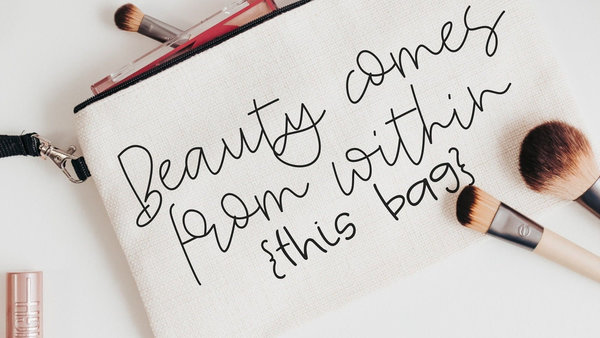 Beauty comes
from within
{this bag}